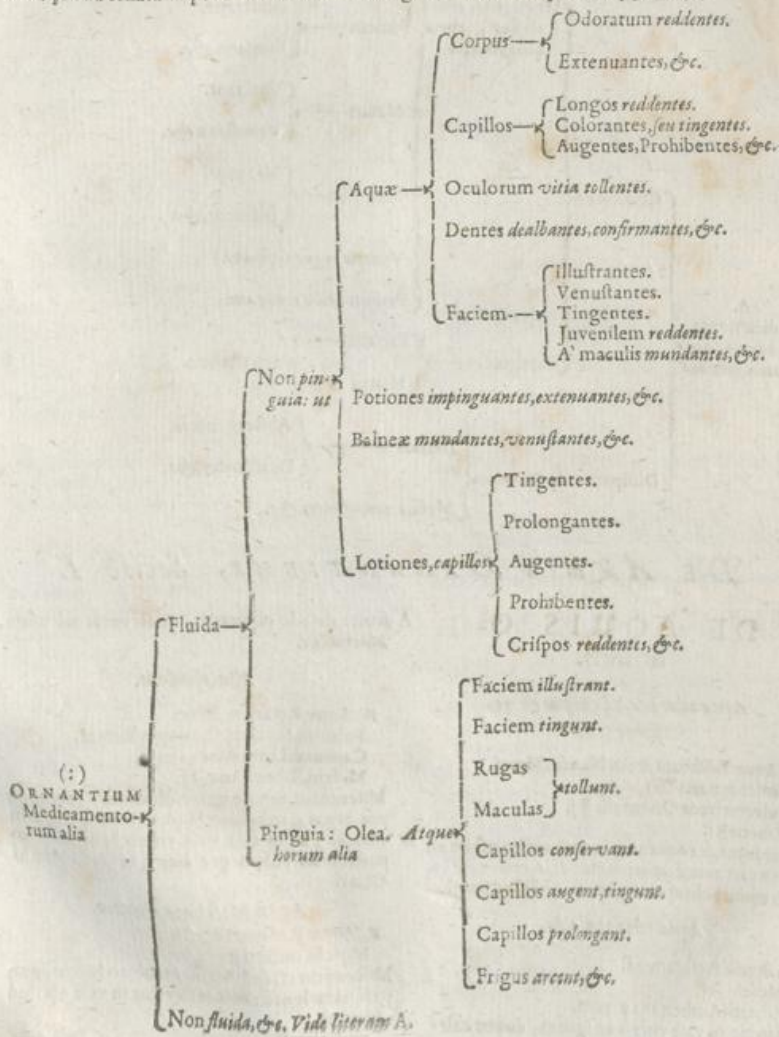 Corpus
Odoratum reddentes.
Extenuantes, &c.
Capillos
Longos reddentes.
Colorantes, ſeu tingentes.
Augentes, Prohibentes, &c.
Aquæ
Oculorum vitia tollentes.
Dentes dealbantes, confirmantes, &c.
Faciem
illuſtrantes.
Venuſtantes.
Tingentes.
Juvenilem reddentes.
A' maculis mundantes, &c.
Non pin-
guia: ut
Potiones impinguantes, extenuantes, &c.
Balneæ mundantes, venuſtantes, &c.
Lotiones, capillos
Tingentes.
Prolongantes.
Augentes.
Prohibentes.
Criſpos reddentes, &c.
Fluida
(:)
ORNANTIUM
Medicamento-
rum alia
Pinguia: Olea. Atque
horum alia
Faciem illuſtrant.
Faciem tingunt.
Rugas
Maculas
tollunt.
Capillos conſervant.
Capillos augent, tingunt.
Capillos prolongant.
Frigus arcent, &c.
Non fluida, &c. Vide literam A.